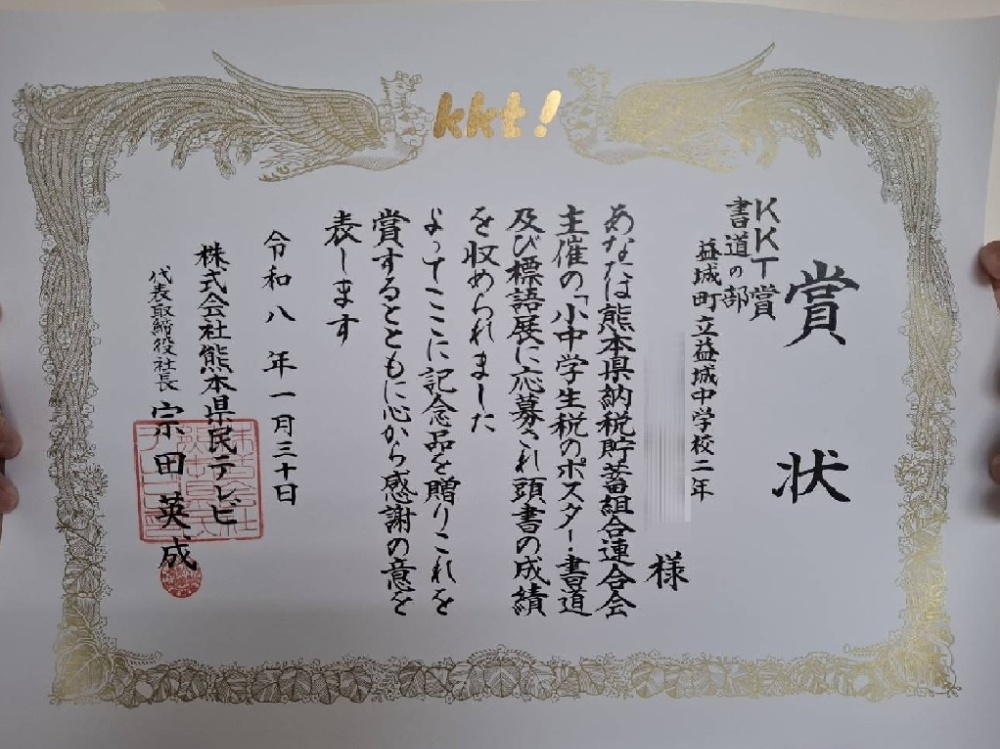 kkt!
賞状
KKT賞
書道の部
益城町立益城中学校二年
様
あなたは熊本県納税貯蓄組合連合会
主催の「小中学生税のポスター・書道
及び標語展に応募され頭書の成績
を収められました
よってここに記念品を贈りこれを
賞するとともに心から感謝の意を
表します
令和八年一月三十日
株式会社熊本県民テレビ
代表取締役社長 宗田英成